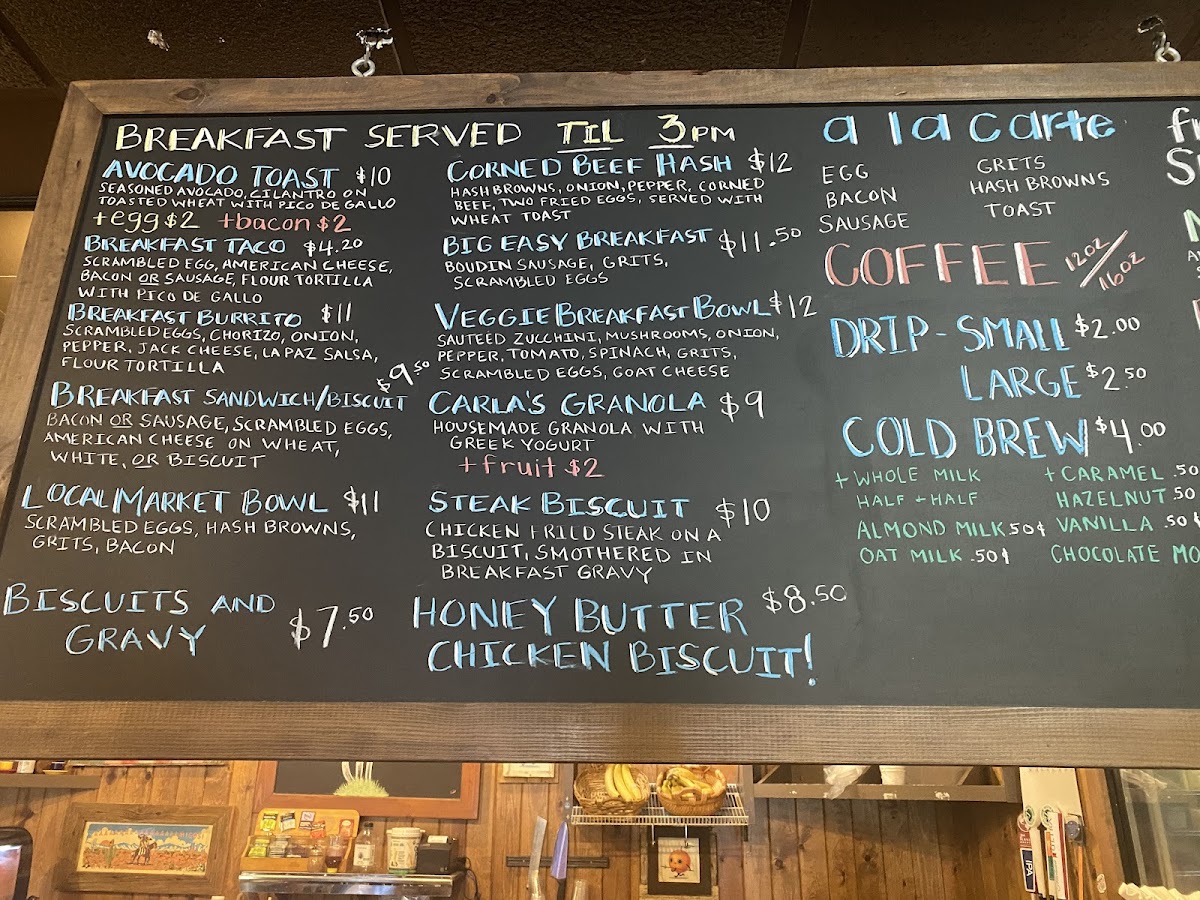 BREAKFAST SERVED TIL 3PM
AVOCADO TOAST $10
SEASONED AVOCADO, CILANTRO ON
TOASTED WHEAT WITH PICO DE GALLO
+egg $2 +bacon $2
BREAKFAST TACO $4.20
SCRAMBLED EGG, AMERICAN CHEESE,
BACON OR SAUSAGE, FLOUR TORTILLA
WITH PICO DE GALLO
BREAKFAST BURRITO $11
SCRAMBLED EGGS, CHORIZO, ONION,
PEPPER, JACK CHEESE, LA PAZ SALSA,
FLOUR TORTILLA
BREAKFAST SANDWICH/BISCUIT $9.50
BACON OR SAUSAGE, SCRAMBLED EGGS,
AMERICAN CHEESE ON WHEAT,
WHITE, OR BISCUIT
LOCAL MARKET BOWL $11
SCRAMBLED EGGS, HASH BROWNS,
GRITS, BACON
BISCUITS AND
GRAVY $7.50
CORNED BEEF HASH $12
HASHBROWNS, ONION, PEPPER, CORNED
BEEF, TWO FRIED EGGS, SERVED WITH
WHEAT TOAST
BIG EASY BREAKFAST $11.50
BOUDIN SAUSAGE, GRITS,
SCRAMBLED EGGS
VEGGIE BREAKFAST BOWL $12
SAUTEED ZUCCHINI, MUSHROOMS, ONION,
PEPPER, TOMATO, SPINACH, GRITS,
SCRAMBLED EGGS, GOAT CHEESE
CARLA'S GRANOLA $9
HOUSEMADE GRANOLA WITH
GREEK YOGURT
+fruit $2
STEAK BISCUIT $10
CHICKEN FRIED STEAK ON A
BISCUIT, SMOTHERED IN
BREAKFAST GRAVY
HONEY BUTTER $8.50
CHICKEN BISCUIT!
a la carte
EGG GRITS
BACON HASH BROWNS
SAUSAGE TOAST
COFFEE 12OZ/16OZ
DRIP-SMALL $2.00
LARGE $2.50
COLD BREW $4.00
+WHOLE MILK +CARAMEL .50
HALF+HALF HAZELNUT .50
ALMOND MILK .50¢ VANILLA .50¢
OAT MILK .50¢ CHOCOLATE MO
IPA